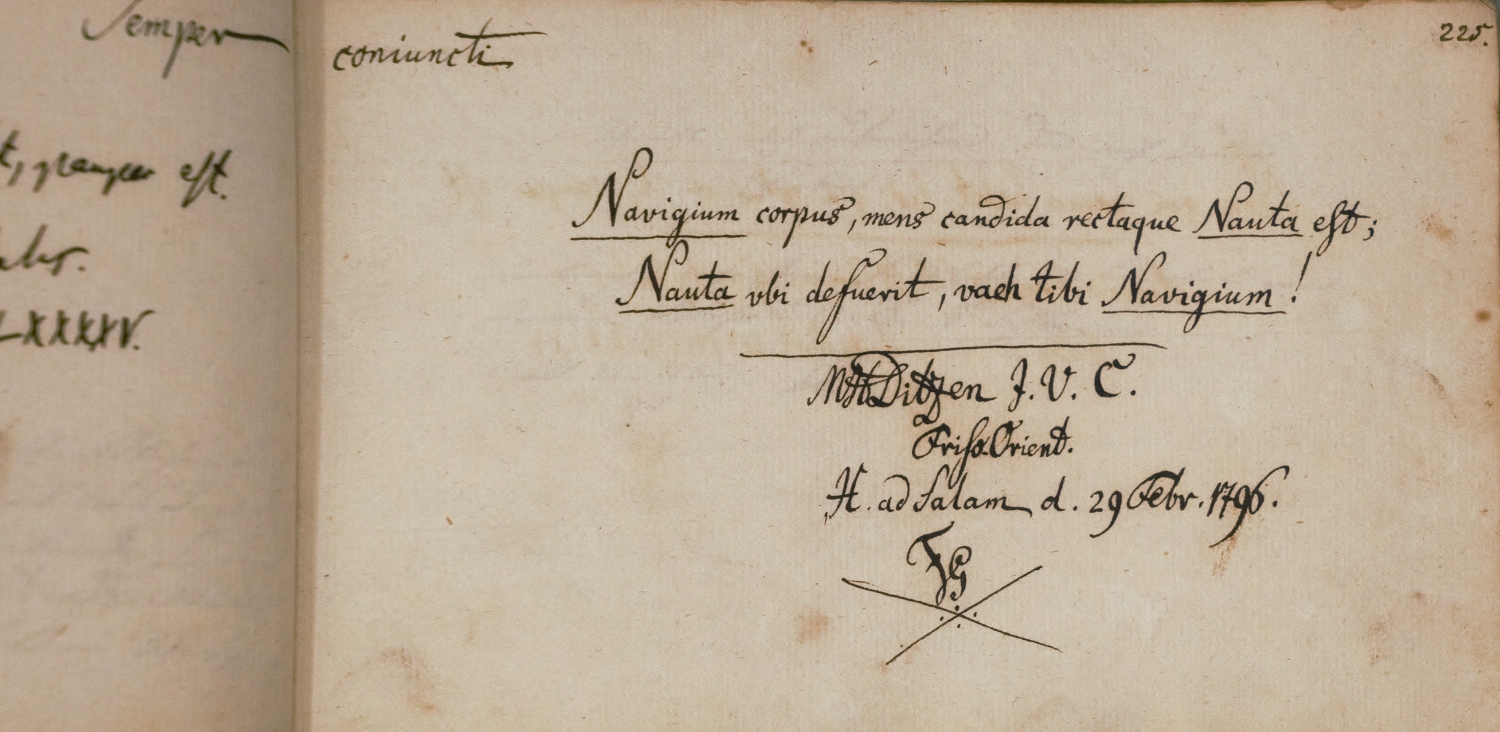 Semper
est.
LXXXXV.
coniuncti
225.
Navigium corpus, mens candida rectaque Nauta est;
Nauta vbi defuerit, vaeh tibi Navigium!
MHDitzen J. V. C.
Friso-Orient.
H. ad Salam d. 29 Febr. 1796.